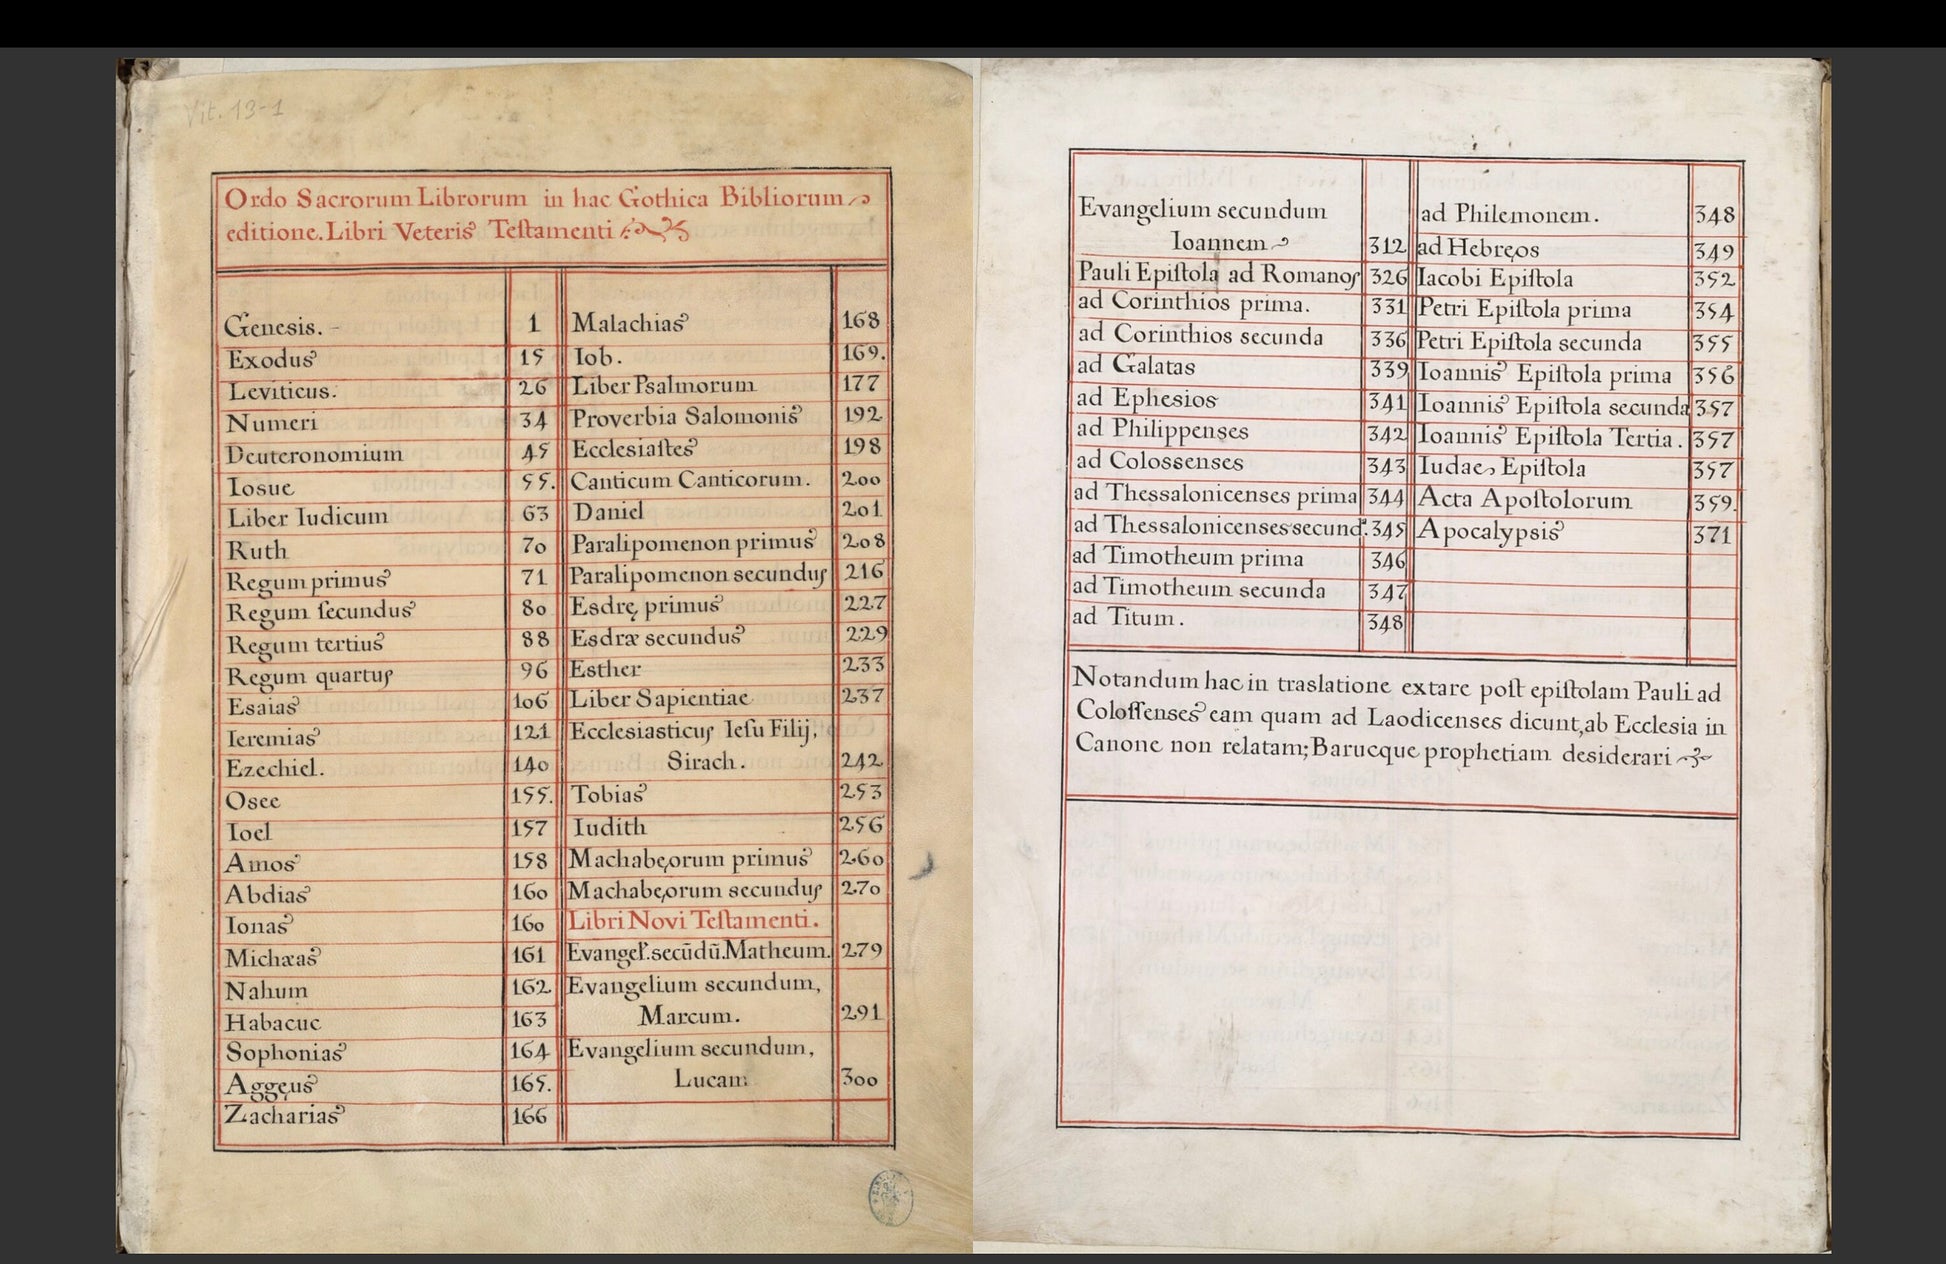 Vit. 13-1
Ordo Sacrorum Librorum in hac Gothica Bibliorum
editione. Libri Veteris Teſtamenti
Genesis. - 1
Exodus 15
Leviticus. 26
Numeri 34
Deuteronomium 45
Iosue 55.
Liber Iudicum 63
Ruth 70
Regum primus 71
Regum ſecundus 80
Regum tertius 88
Regum quartus 96
Esaias 106
Ieremias 121
Ezechiel. 140
Osee 155.
Ioel 157
Amos 158
Abdias 160
Ionas 160
Michæas 161
Nahum 162
Habacuc 163
Sophonias 164
Aggęus 165.
Zacharias 166
Malachias 168
Iob. 169.
Liber Psalmorum 177
Proverbia Salomonis 192
Ecclesiaſtes 198
Canticum Canticorum. 200
Daniel 201
Paralipomenon primus 208
Paralipomenon secundus 216
Esdrę primus 227
Esdræ secundus 229
Esther 233
Liber Sapientiae 237
Ecclesiasticus Ieſu Filij,
Sirach. 242
Tobias 253
Iudith 256
Machabęorum primus 260
Machabęorum secundus 270
Libri Novi Teſtamenti.
Evangel. secūdū. Matheum. 279
Evangelium secundum,
Marcum. 291
Evangelium secundum,
Lucam 300
Evangelium secundum
Ioannem 312
Pauli Epiſtola ad Romanos 326
ad Corinthios prima. 331
ad Corinthios secunda 336
ad Galatas 339
ad Ephesios 341
ad Philippenses 342
ad Colossenses 343
ad Thessalonicenses prima 344
ad Thessalonicenses secund. 345
ad Timotheum prima 346
ad Timotheum secunda 347
ad Titum. 348
ad Philemonem. 348
ad Hebręos 349
Iacobi Epiſtola 352
Petri Epiſtola prima 354
Petri Epiſtola secunda 355
Ioannis Epiſtola prima 356
Ioannis Epiſtola secunda 357
Ioannis Epiſtola Tertia. 357
Iudae Epiſtola 357
Acta Apoſtolorum 359.
Apocalypsis 371
Notandum hac in traslatione extare poſt epiſtolam Pauli ad
Coloſſenses eam quam ad Laodicenses dicunt, ab Ecclesia in
Canone non relatam; Barucque prophetiam desiderari